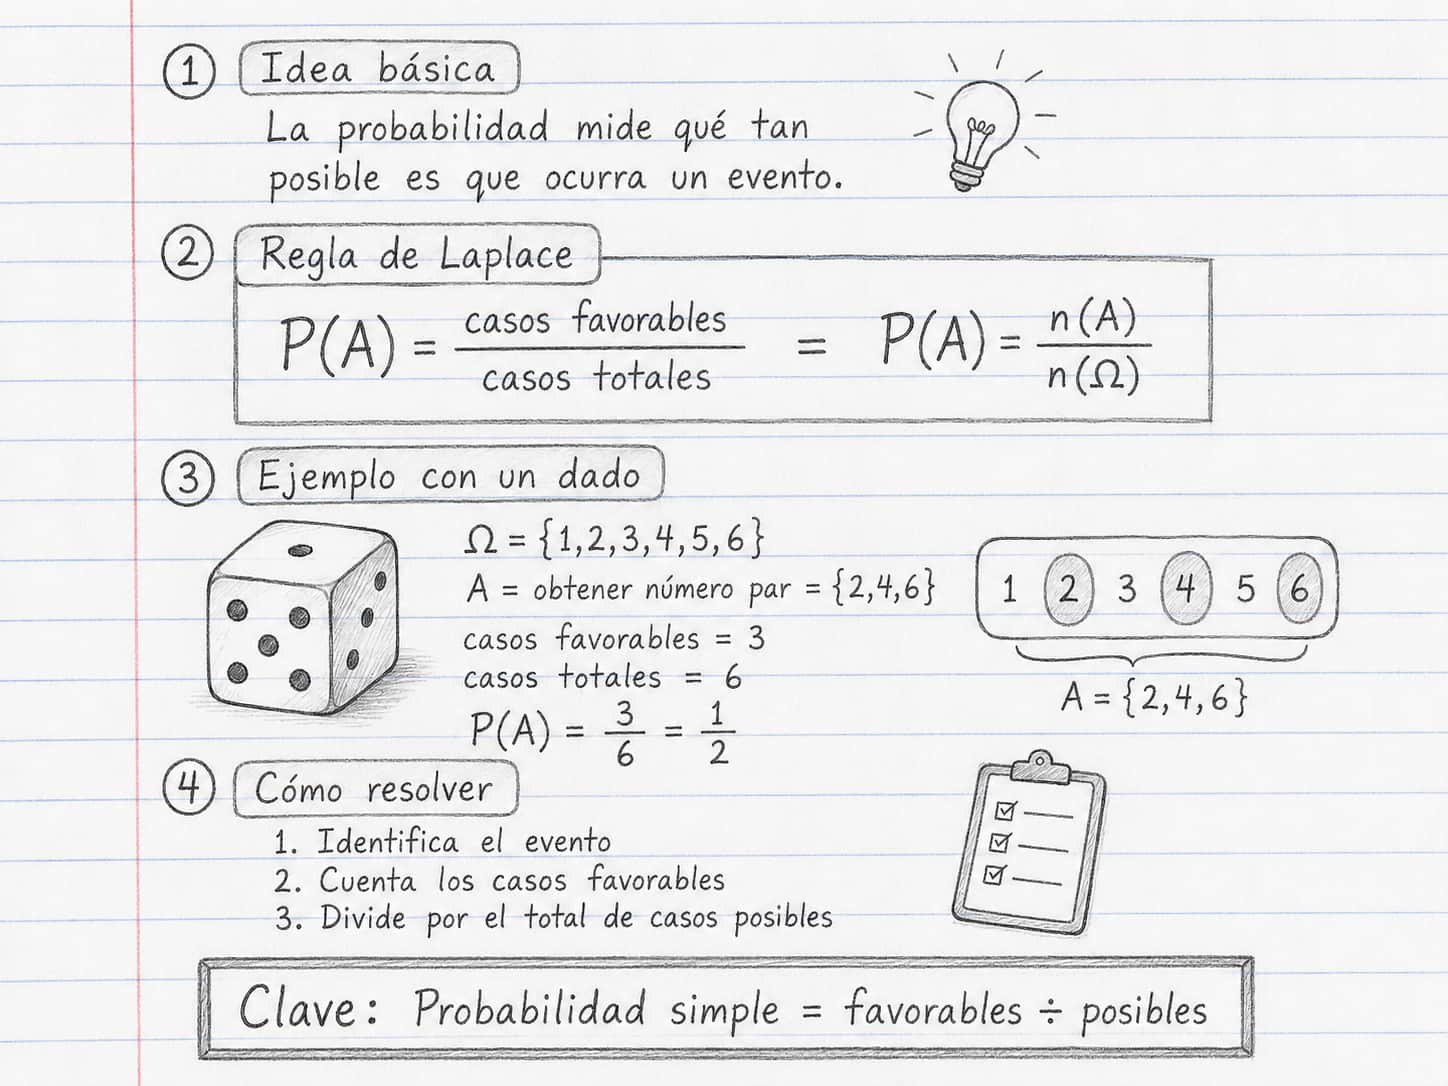 1 Idea básica
La probabilidad mide qué tan
posible es que ocurra un evento.
2 Regla de Laplace
P(A) = casos favorables / casos totales = P(A) = n(A) / n(Ω)
3 Ejemplo con un dado
Ω = {1,2,3,4,5,6}
A = obtener número par = {2,4,6}
casos favorables = 3
casos totales = 6
P(A) = 3/6 = 1/2
1 2 3 4 5 6
A = {2,4,6}
4 Cómo resolver
1. Identifica el evento
2. Cuenta los casos favorables
3. Divide por el total de casos posibles
Clave: Probabilidad simple = favorables ÷ posibles